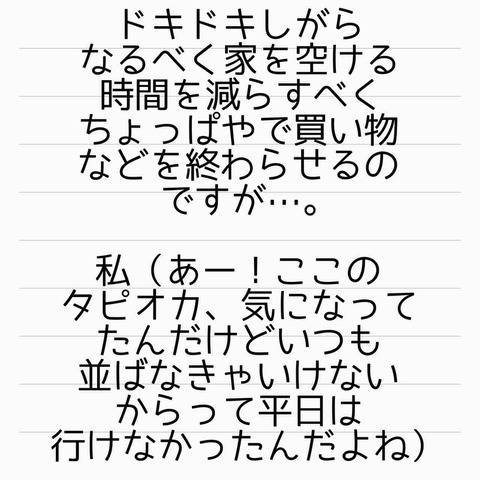 ドキドキしがら
なるべく家を空ける
時間を減らすべく
ちょっぱやで買い物
などを終わらせるの
ですが…。
私（あー！ここの
タピオカ、気になって
たんだけどいつも
並ばなきゃいけない
からって平日は
行けなかったんだよね）